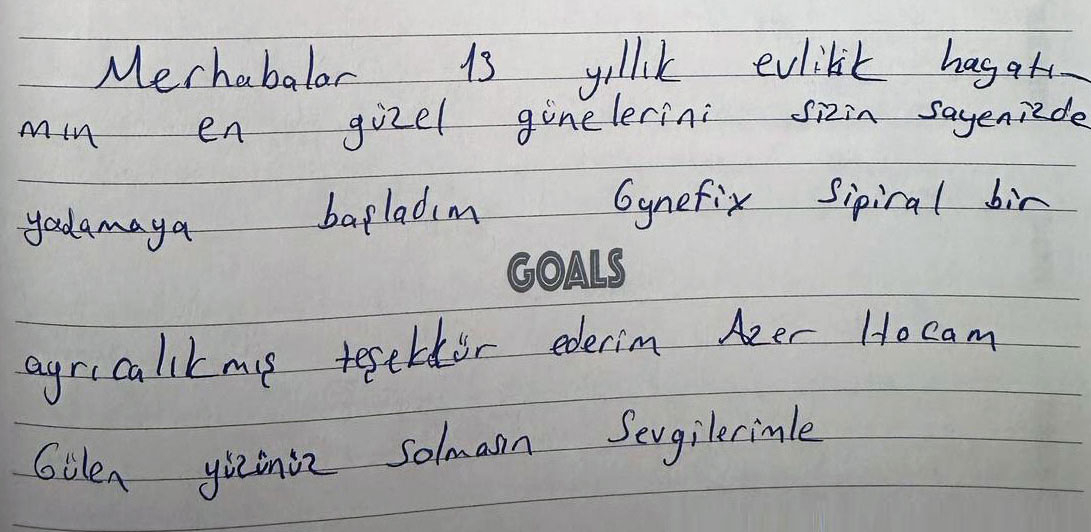 Merhabalar 13 yıllık evlikik hayatı-
mın en güzel günelerini sizin sayenizde
yadamaya başladım Gynefix Sipiral bir
GOALS
ayrıcalıkmış teşekkür ederim Azer Hocam
Gülen yüzünüz solmasın Sevgilerimle